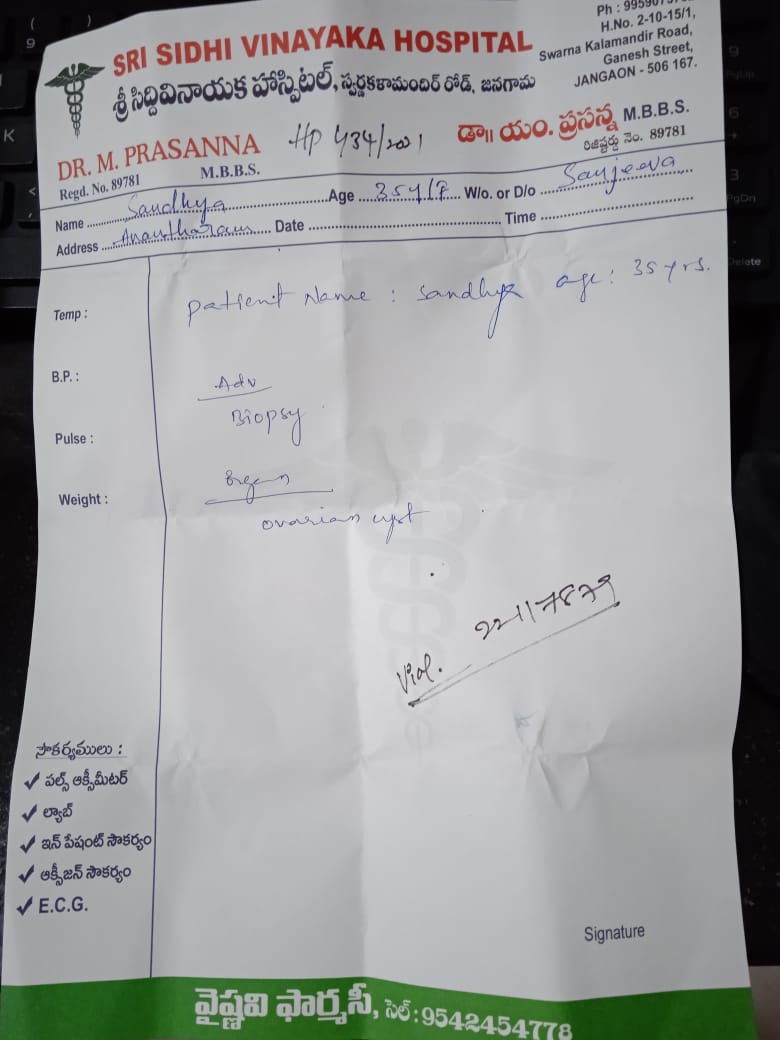 Ph : 99590
H.No. 2-10-15/1,
Swarna Kalamandir Road,
Ganesh Street,
JANGAON - 506 167.
SRI SIDHI VINAYAKA HOSPITAL
శ్రీ సిద్దివినాయక హాస్పిటల్, స్వర్ణకళామందిర్ రోడ్, జనగామ
DR. M. PRASANNA
M.B.B.S.
Regd. No. 89781
HP 434/2021
డా॥ యం. ప్రసన్న M.B.B.S.
రిజిష్టర్డు నెం. 89781
Name Sandhya Age 35y/F W/o. or D/o Sanjeeva
Address Anantharam Date Time
Temp :
B.P. :
Pulse :
Weight :
Patient Name : Sandhya age : 35 yrs.
Adv
Biopsy
Organ
ovarian cyst
Vial. 22117879
సౌకర్యములు :
✓ పల్స్ ఆక్సీమీటర్
✓ ల్యాబ్
✓ ఇన్ పేషంట్ సౌకర్యం
✓ ఆక్సీజన్ సౌకర్యం
✓ E.C.G.
Signature
వైష్ణవి ఫార్మసీ, సెల్ : 9542454778